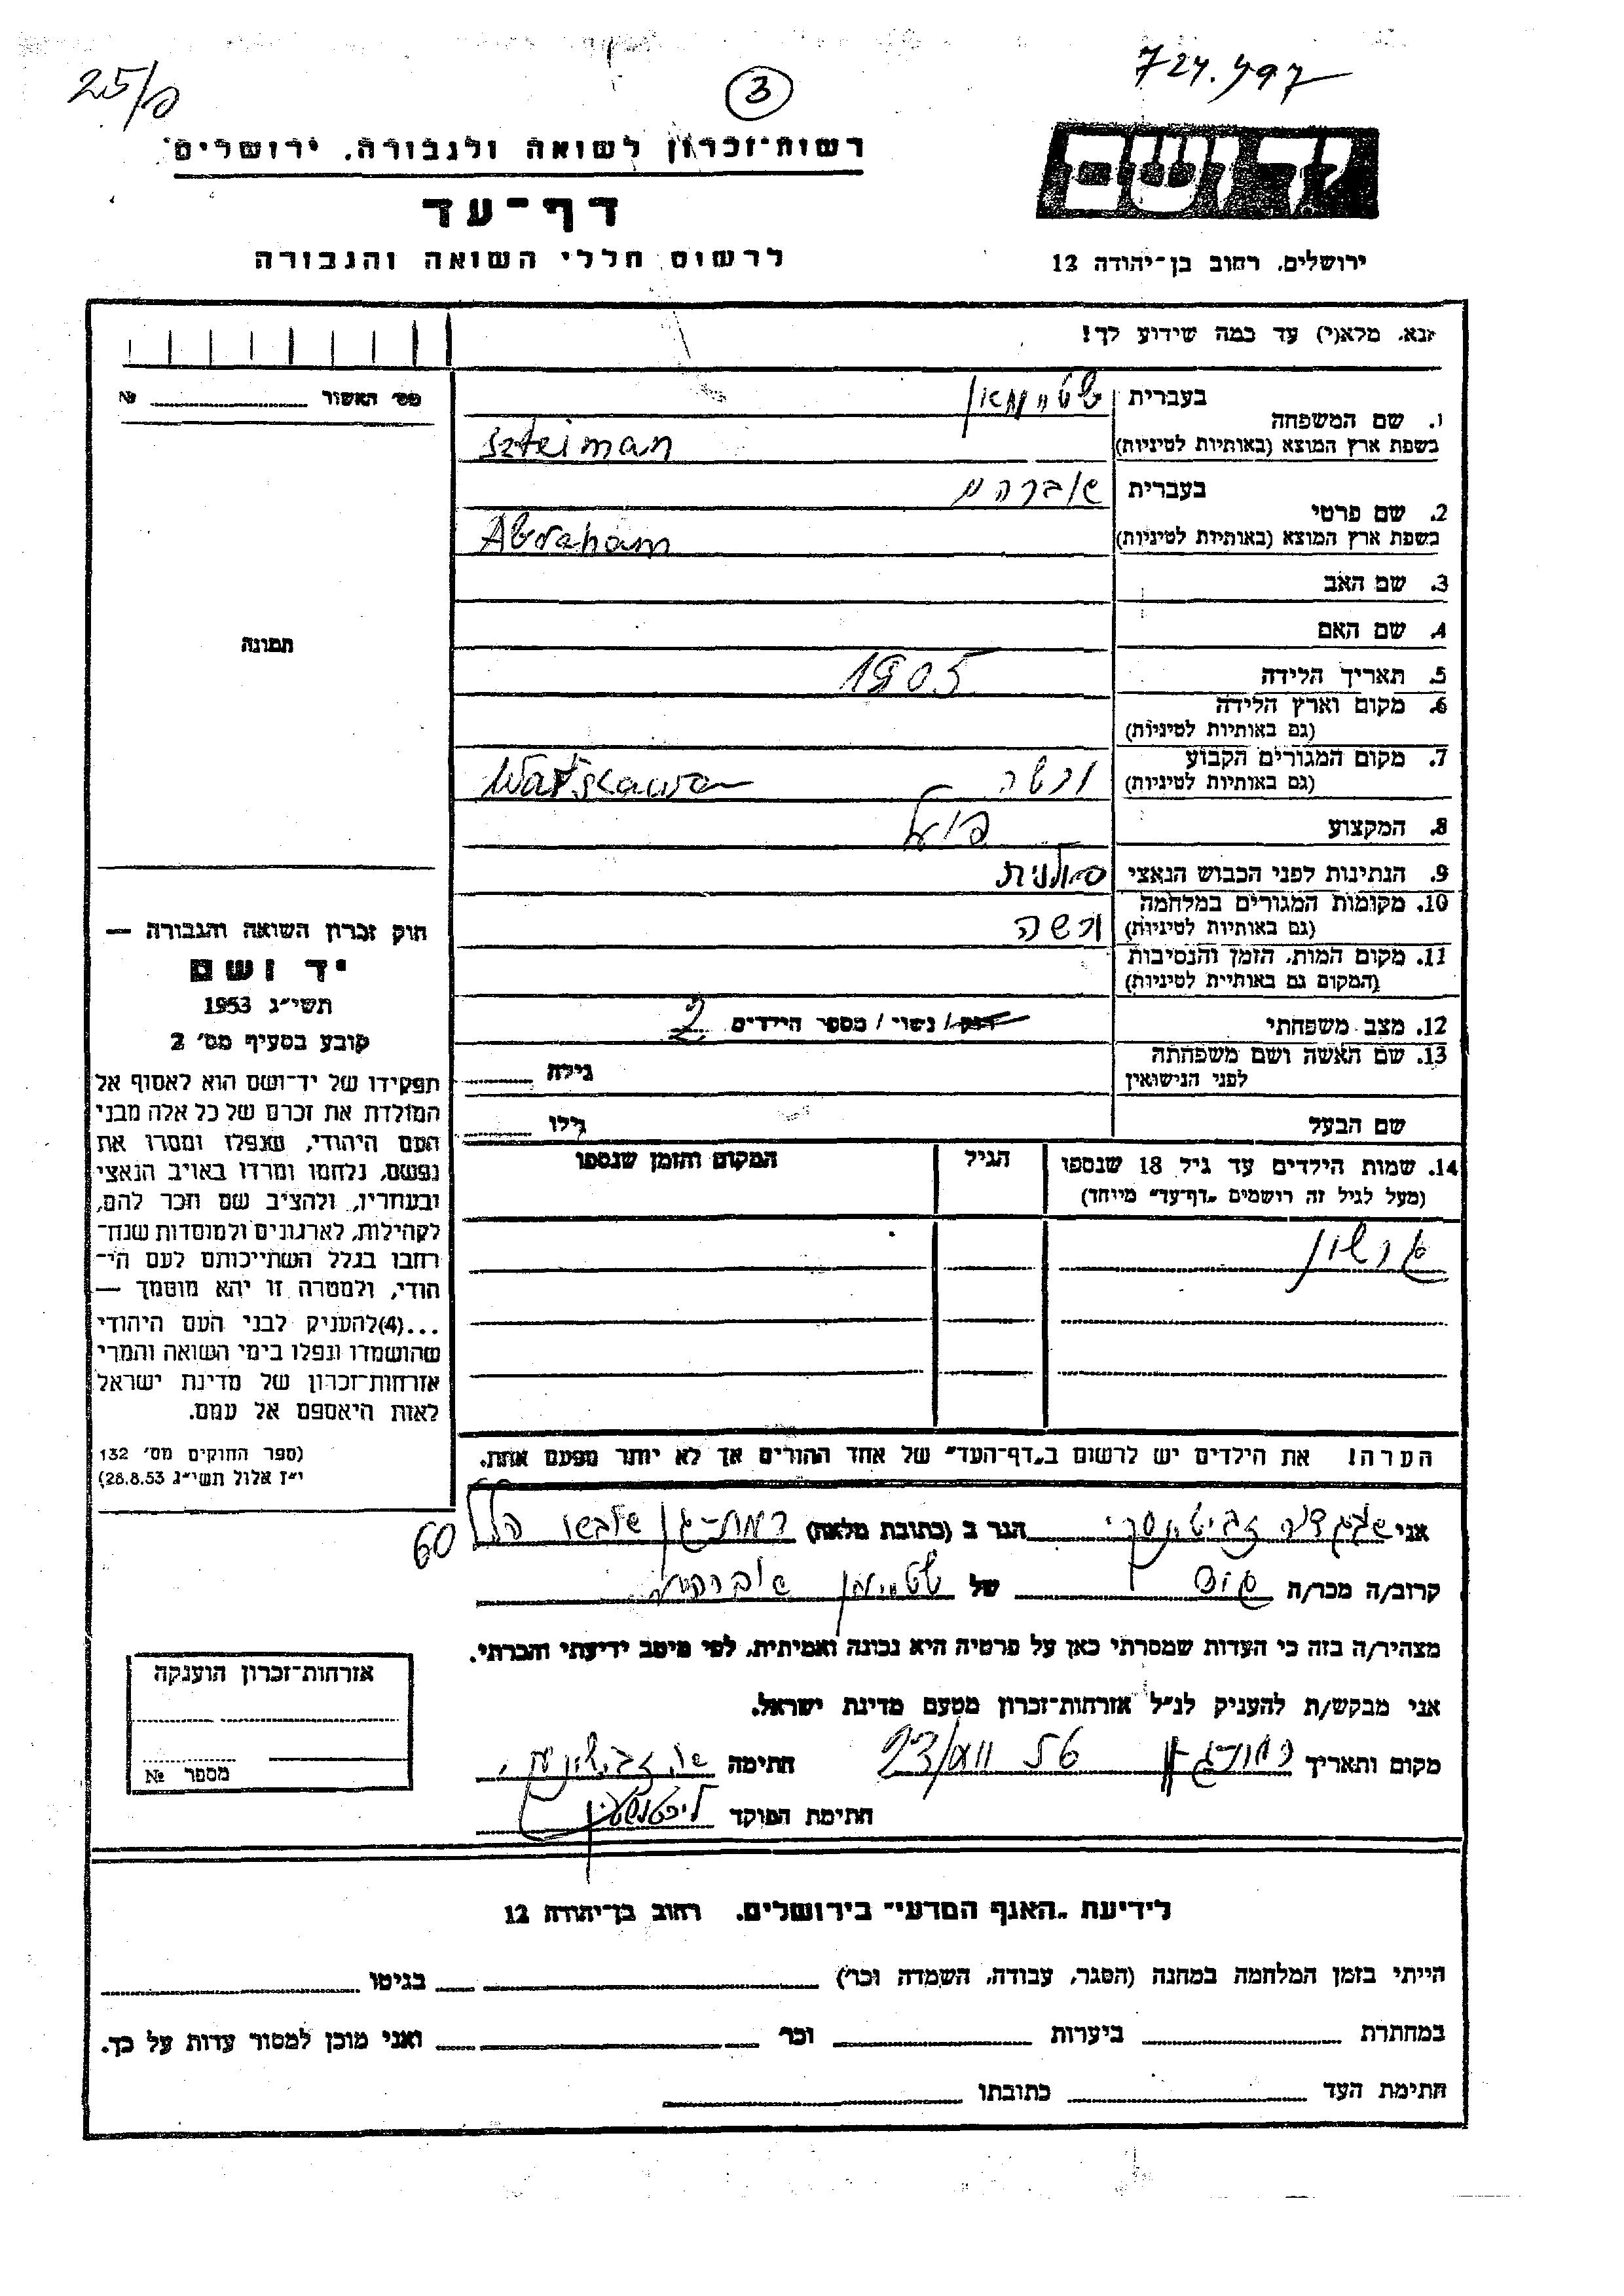 25/ם
3
724.497
רשות־זכרון לשואה ולגבורה, ירושלים
דף־עד
לרשום חללי השואה והגבורה
יד ושם
ירושלים, רחוב בן־יהודה 12
נא, מלא(י) עד כמה שידוע לך!
מס׳ האשור № 
1. שם המשפחה בעברית שטיימאן
בשפת ארץ המוצא (באותיות לטיניות) Szteiman
2. שם פרטי בעברית אברהם
בשפת ארץ המוצא (באותיות לטיניות) Abraham
3. שם האב
4. שם האם
5. תאריך הלידה 1905
6. מקום וארץ הלידה
(גם באותיות לטיניות)
7. מקום המגורים הקבוע ורשה
(גם באותיות לטיניות)
8. המקצוע פועל
9. הנתינות לפני הכבוש הנאצי פולנית
10. מקומות המגורים במלחמה
(גם באותיות לטיניות) ורשה
11. מקום המות, הזמן והנסיבות
(המקום גם באותיות לטיניות)
12. מצב משפחתי רוק / נשוי / מספר הילדים 2
13. שם האשה ושם משפחתה
לפני הנישואין
גילה
שם הבעל
גילו
14. שמות הילדים עד גיל 18 שנספו
(מעל לגיל זה רושמים „דף־עד״ מיוחד)
הגיל
המקום והזמן שנספו
תמונה
חוק זכרון השואה והגבורה —
יד ושם
תשי״ג 1953
קובע בסעיף מס׳ 2
תפקידו של יד־ושם הוא לאסוף אל
המולדת את זכרם של כל אלה מבני
העם היהודי, שנפלו ומסרו את
נפשם, נלחמו ומרדו באויב הנאצי
ובעוזריו, ולהציב שם וזכר להם,
לקהילות, לארגונים ולמוסדות שנח־
רבו בגלל השתייכותם לעם הי־
הודי, ולמטרה זו יהא מוסמך —
...(4) להעניק לבני העם היהודי
שהושמדו ונפלו בימי השואה והמרי
אזרחות־זכרון של מדינת ישראל
לאות היאספם אל עמם.
(ספר החוקים מס׳ 132
י״ז אלול תשי״ג 28.8.53)
הערה! את הילדים יש לרשום ב„דף־העד״ של אחד ההורים אך לא יותר מפעם אחת.
אני הגר ב (כתובת מלאה) רמת־גן 60
קרוב/ה מכר/ה של שטיימן אברהם
מצהיר/ה בזה כי העדות שמסרתי כאן על פרטיה היא נכונה ואמיתית, לפי מיטב ידיעתי והכרתי.
אני מבקש/ת להעניק לנ״ל אזרחות־זכרון מטעם מדינת ישראל.
מקום ותאריך רמת־גן חתימה
חתימת הפוקד
אזרחות־זכרון הוענקה
מספר №
לידיעת „האגף המדעי״ בירושלים, רחוב בן־יהודה 12
הייתי בזמן המלחמה במחנה (הסגר, עבודה, השמדה וכו׳) בגיטו
במחתרת ביערות וכו׳ ואני מוכן למסור עדות על כך.
חתימת העד כתובתו